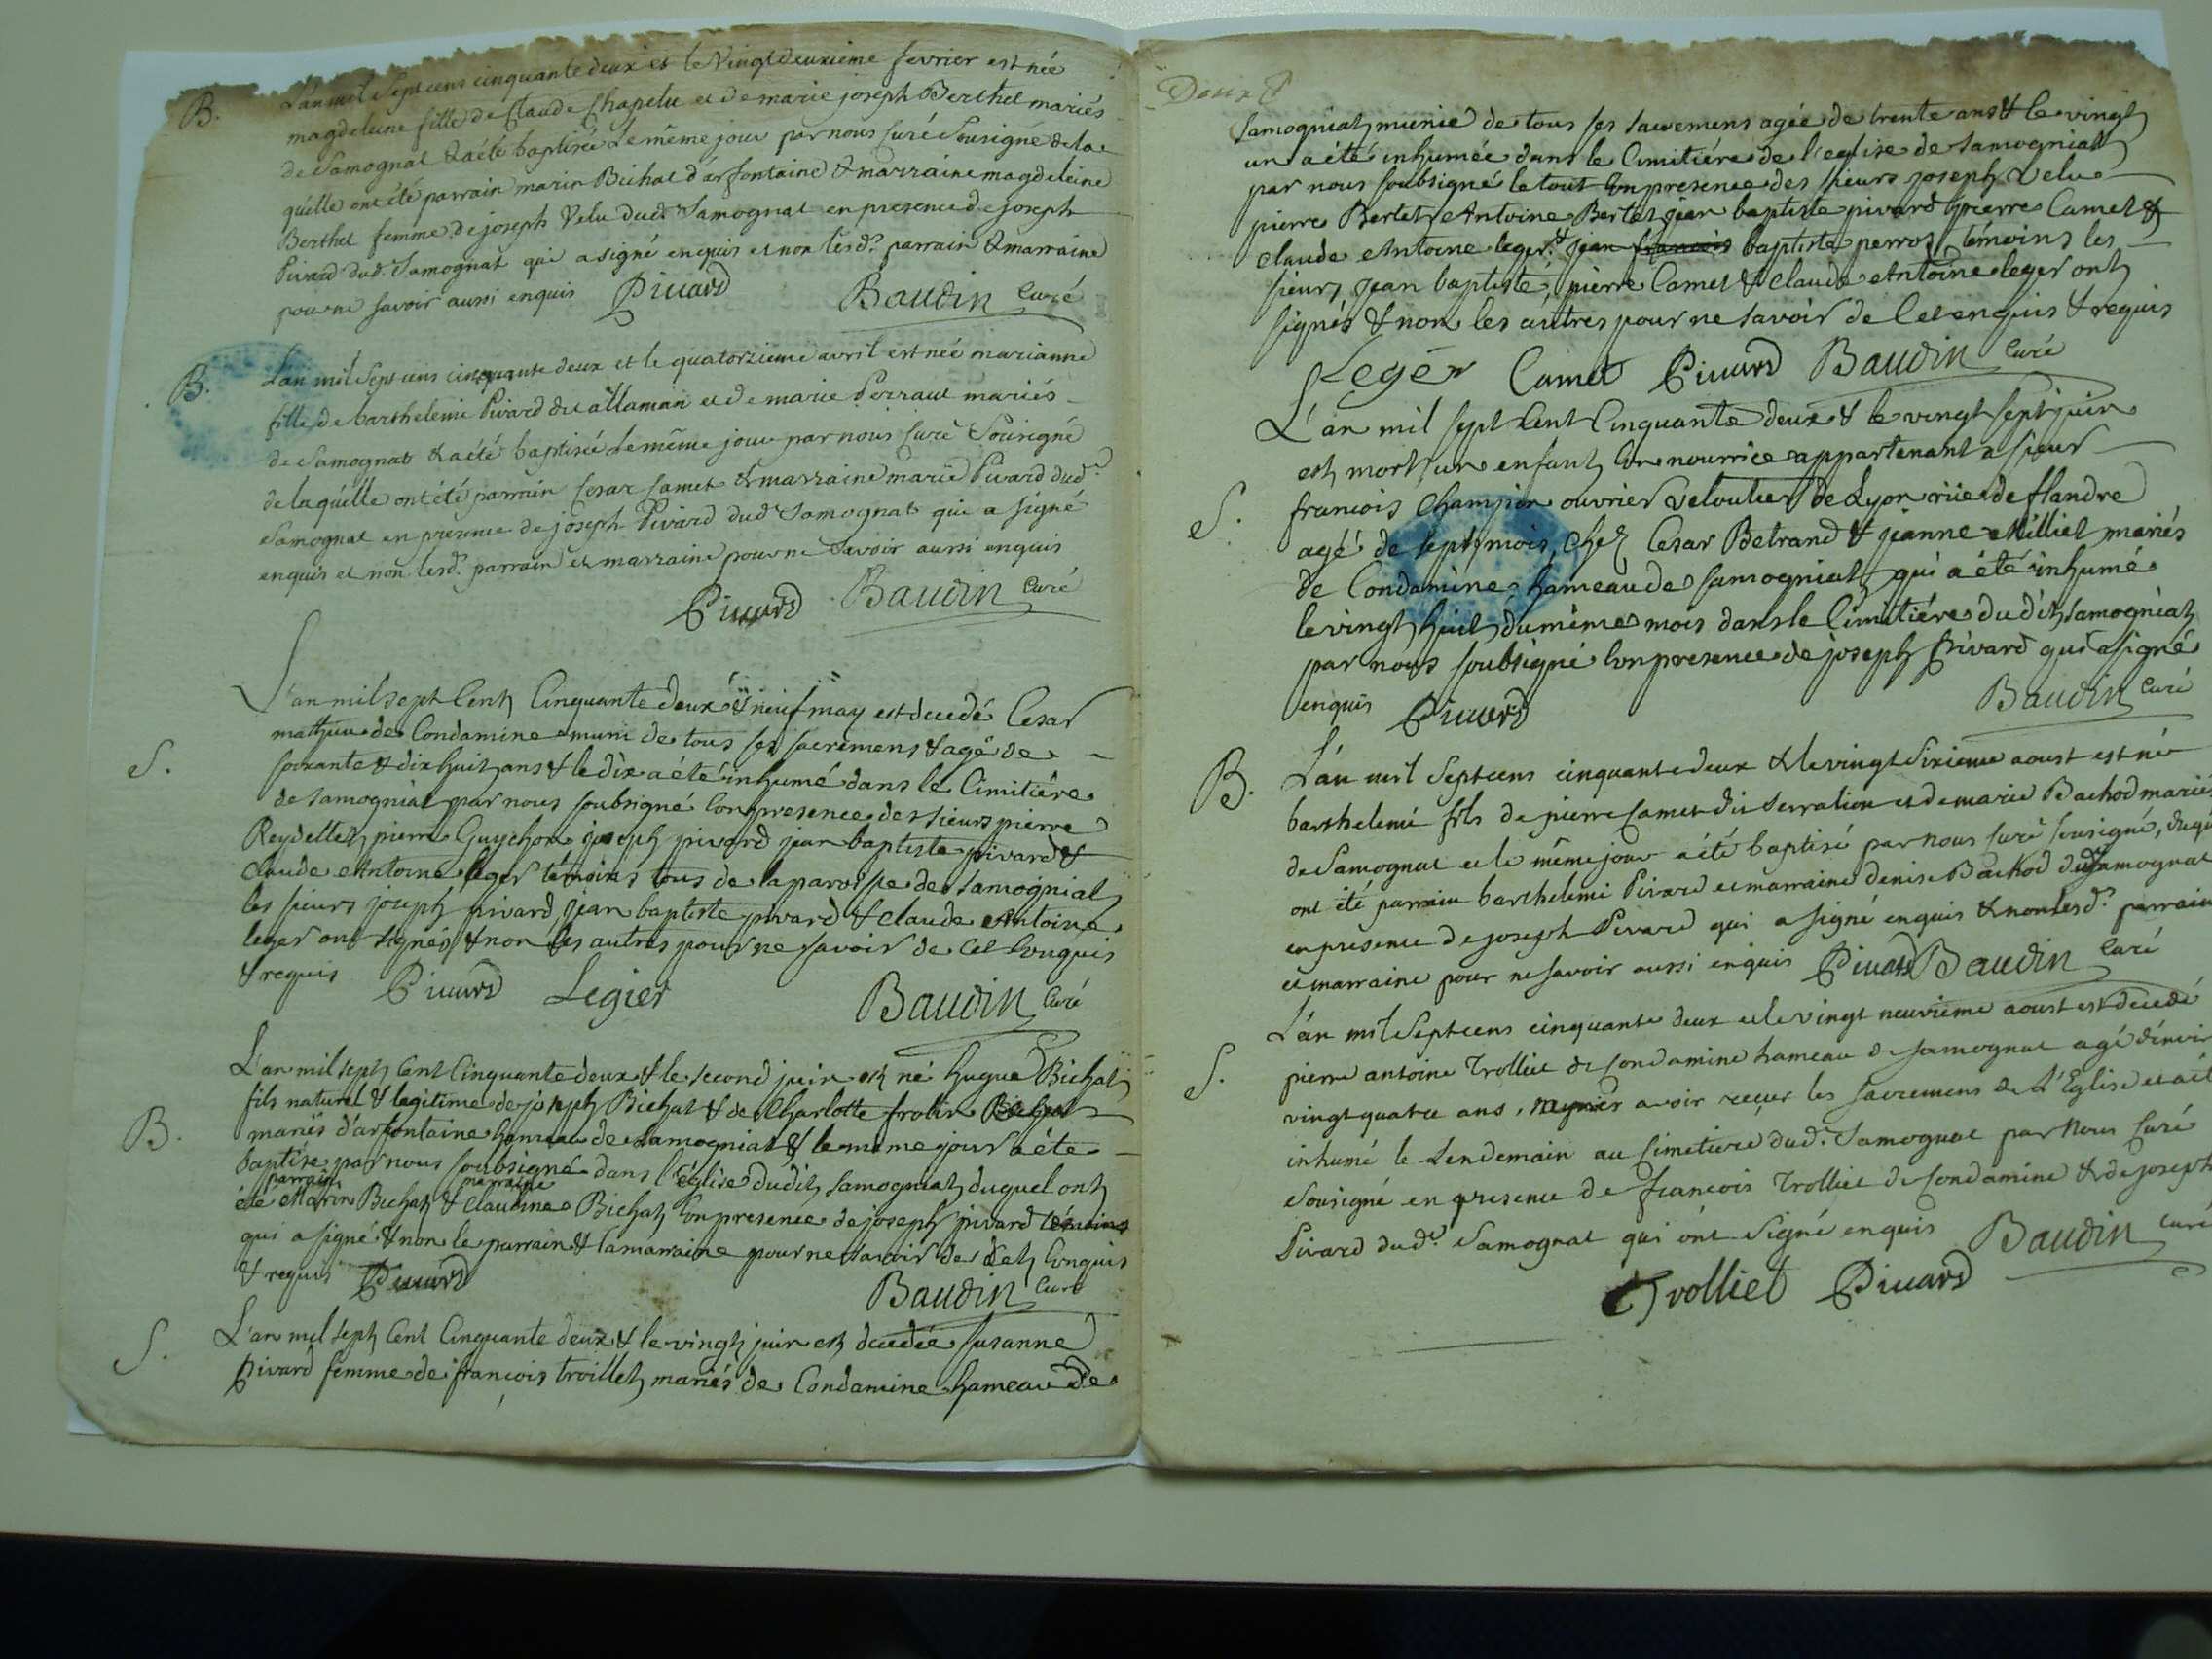 B. L'an mil sept cens cinquante deux et le Vingtdeuxieme fevrier est née
magdeleine fille de Claude Chapelu et de marie joseph Berthet mariés
de Samognat & a été baptisée le même jour par nous Curé Sousigné de la
quelle ont été parrain marin Bichat d'arfontaine & marraine magdeleine
Berthet femme de joseph Velu dud. Samognat en presence de joseph
Pivard dud. Samognat qui a signé enquis et non lesd. parrain & marraine
pour ne savoir aussi enquis Pivard Baudin Curé
B. L'an mil sept cens cinquante deux et le quatorzieme avril est née marianne
fille de barthelemi Pivard dit allaman et de marie Perraut mariés
de Samognat & a été baptisée le même jour par nous Curé Sousigné
de laquelle ont été parrain Cesar Camet & marraine marie Pivard dud.
Samognat en presence de joseph Pivard dud. Samognat qui a signé
enquis et non lesd. parrain et marraine pour ne savoir aussi enquis
Pivard Baudin Curé
L'an mil sept Cent Cinquante deux & neuf may est decedé Cesar
mathieu de Condamine muni de tous ses sacremens & agé de
S. soixante & dix huit ans & le dix a été inhumé dans le Cimitiére
de samogniat par nous soubsigné En presence des sieurs pierre
Reydellet pierre Guychon joseph pivard jean baptiste pivard &
claude Antoine leger témoins tous de la paroisse de samogniat
les sieurs joseph pivard, jean baptiste pivard & claude Antoine
leger ont signés & non les autres pour ne savoir de Cet Enquis
& requis Pivard Legier Baudin Curé
L'an mil sept Cent Cinquante deux & le second juin est né hugue Bichat
fils naturel & legitime de joseph Bichat & de Charlotte frolin
B. mariés d'arfontaine hameau de samogniat & le meme jour a été
baptisé par nous soubsigné dans l'église dudit samogniat duquel ont
parrain marraine
été Marin Bichat & claudine Bichat En presence de joseph pivard témoins
qui a signé & non le parrain & la marraine pour ne savoir de Cet Enquis
& requis Pivard Baudin Curé
S. L'an mil sept Cent Cinquante deux & le vingt juin est decedée susanne
pivard femme de françois troillet mariés de Condamine hameau de
samogniat munie de tous ses sacremens agée de trente ans & le vingt
un a été inhumée dans le Cimitiére de l'eglise de samogniat
par nous soubsigné le tout En presence des sieurs joseph Velu
pierre Bertet Antoine Bertet jean baptiste pivard pierre Camet &
claude Antoine leger & jean francois baptiste perrot témoins les
sieurs jean baptiste, pierre Camet & claude Antoine leger ont
signés & non les autres pour ne savoir de Cet enquis & requis
Leger Camet Pivard Baudin Curé
L'an mil sept Cent Cinquante deux & le vingt sept juin
est mort un enfant En nourrice appartenant a sieur
S. francois Champion ouvrier veloutier de Lyon rüe de flandre
agé de sept mois, chez Cesar Betrand & jeanne Milliet mariés
de Condamine hameau de samogniat qui a été inhumé
le vingt huit du même mois dans le Cimitiére dudit samogniat
par nous soubsigné En presence de joseph Pivard qui a signé
enquis Pivard Baudin Curé
B. L'an mil Septcens cinquante deux & le vingt Sixieme aoust est né
barthelemi fils de pierre Camet dit serration et de marie Bachod mariés
de Samognat et le même jour a été baptisé par nous Curé sousigné, duqu
ont été parrain barthelemi Pivard et marraine denise Bachod dud. Samognat
en presence de joseph Pivard qui a signé enquis & non lesd. parrain
et marraine pour ne savoir aussi enquis Pivard Baudin Curé
L'an mil Septcens cinquante deux et le vingt neuvieme aoust est decedé
S. pierre antoine Trolliet de Condamine hameau de samognat agé d'envir
vingt quatre ans, avoir reçu les sacremens de L'Eglise et a été
inhumé le Lendemain au Cimetiere dud. Samognat par Nous Curé
Sousigné en presence de francois Trolliet de Condamine & de joseph
Pivard dud. Samognat qui ont Signé enquis Baudin Curé
Trolliet Pivard